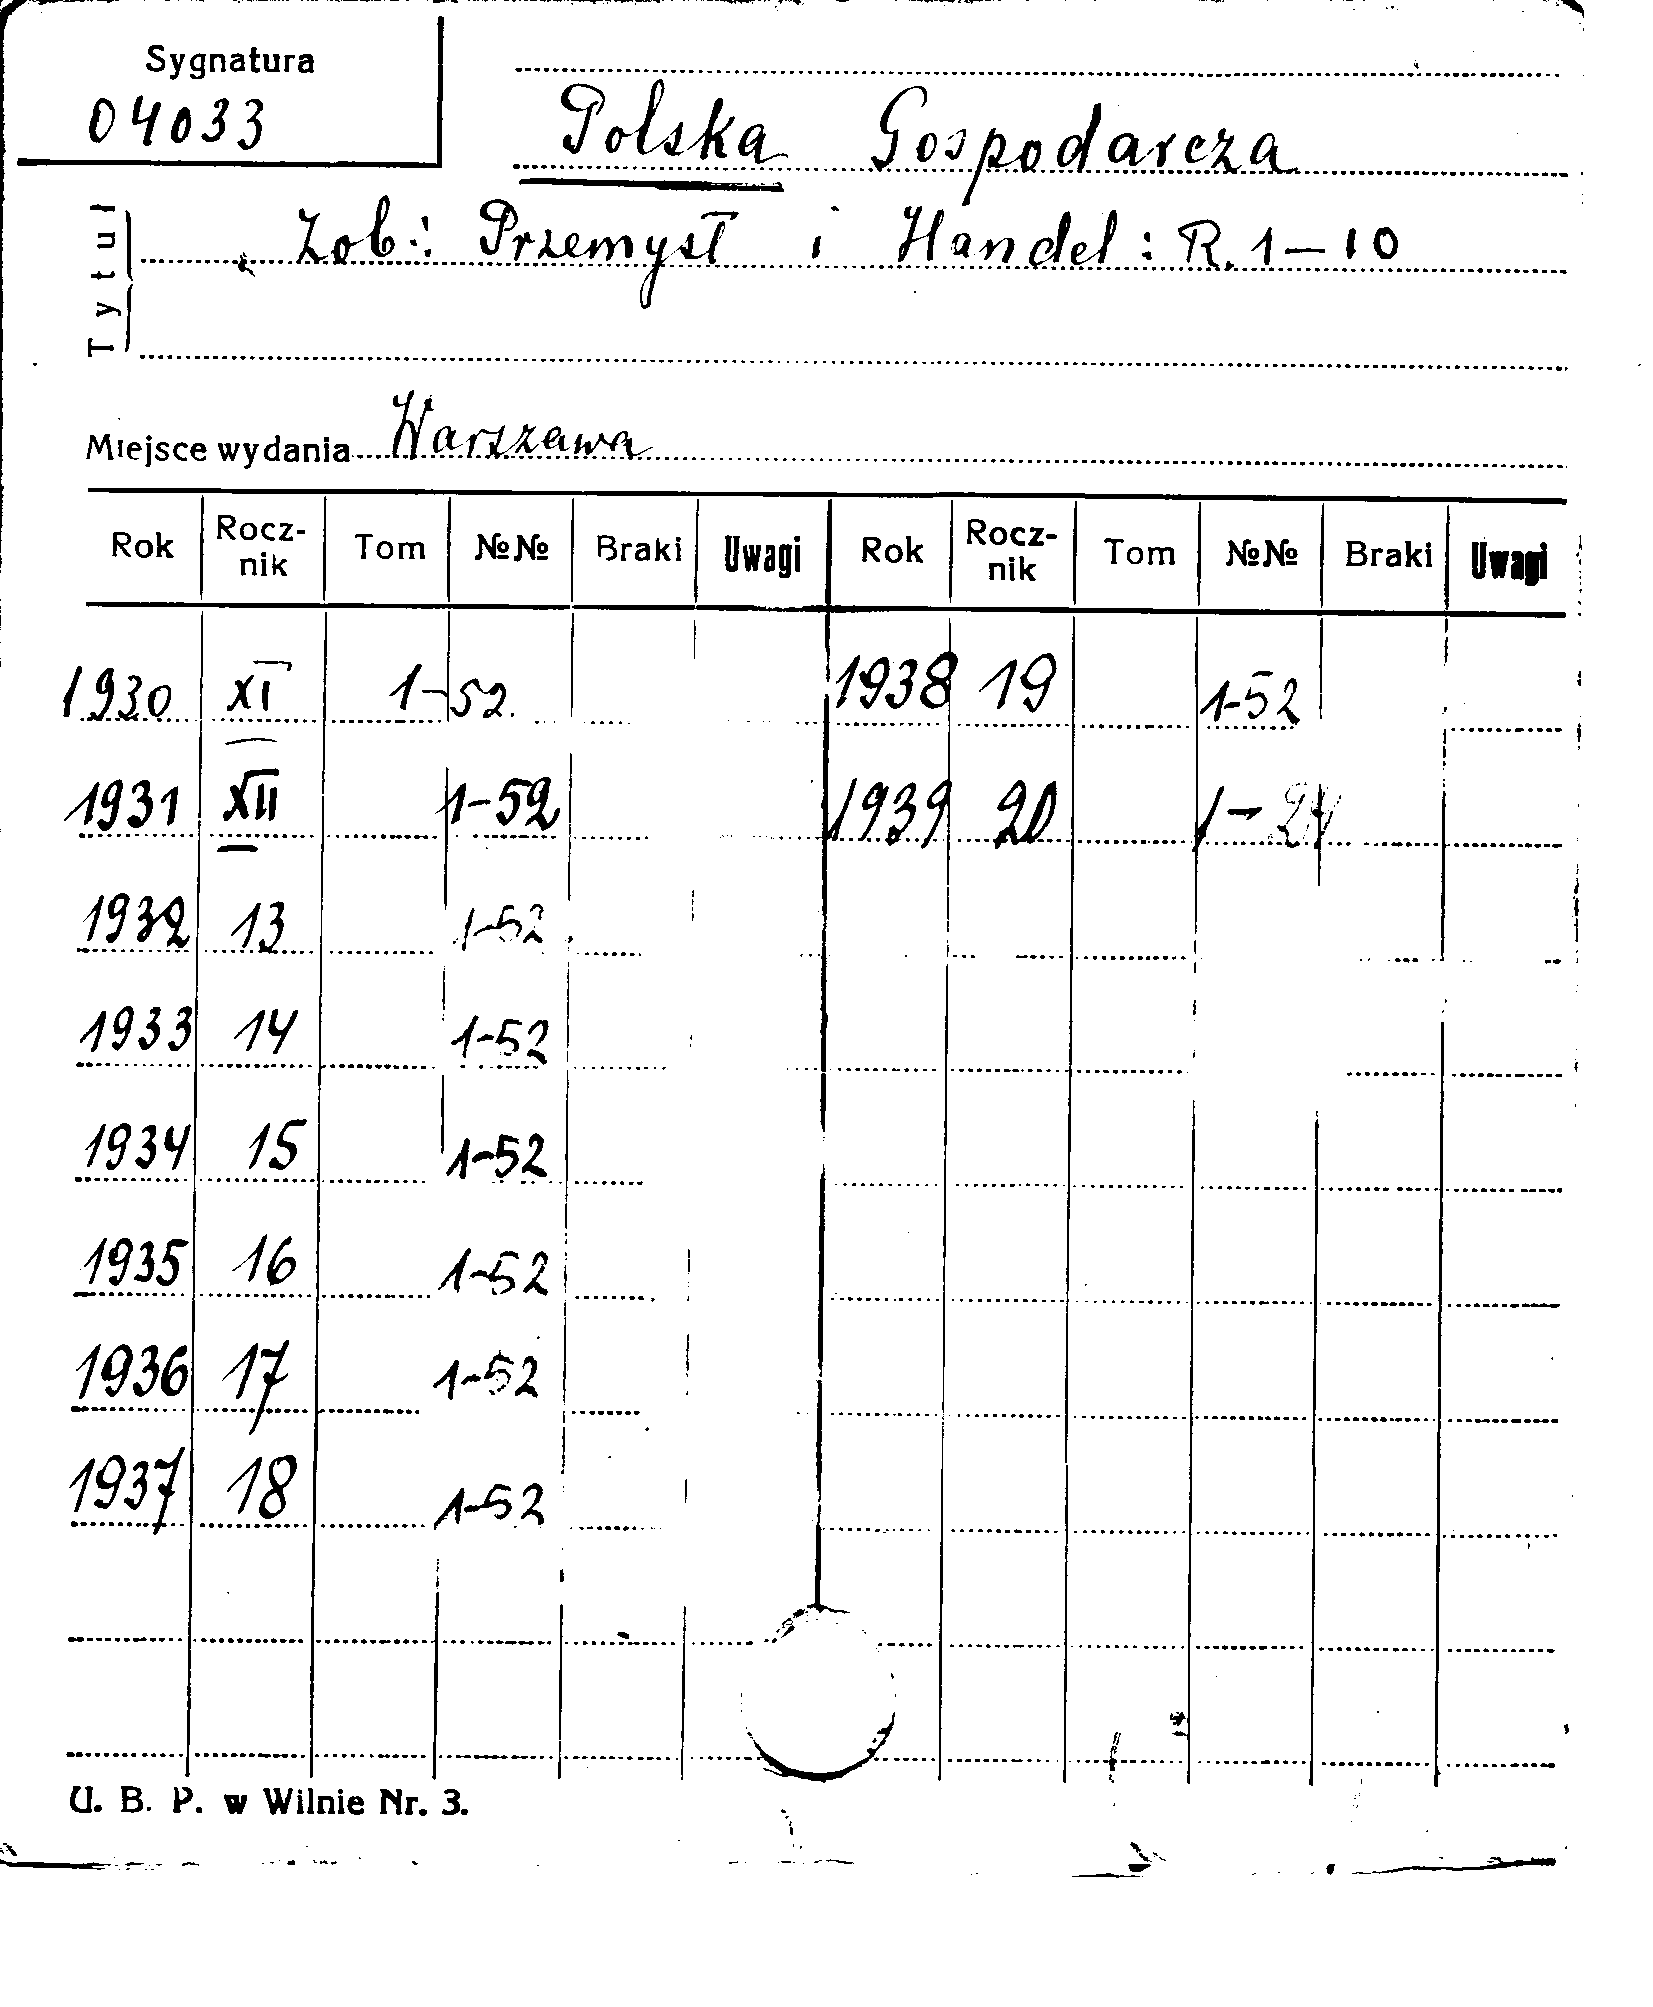 Sygnatura
04033
Polska Gospodarcza
Tytuł
Zob: Przemysł i Handel: R. 1–10
Miejsce wydania Warszawa
Rok Rocz-nik Tom №№ Braki Uwagi Rok Rocz-nik Tom №№ Braki Uwagi
1930 XI 1-52. 1938 19 1-52
1931 XII 1-52 1939 20 1-24
1932 13 1-52
1933 14 1-52
1934 15 1-52
1935 16 1-52
1936 17 1-52
1937 18 1-52
U. B. P. w Wilnie Nr. 3.